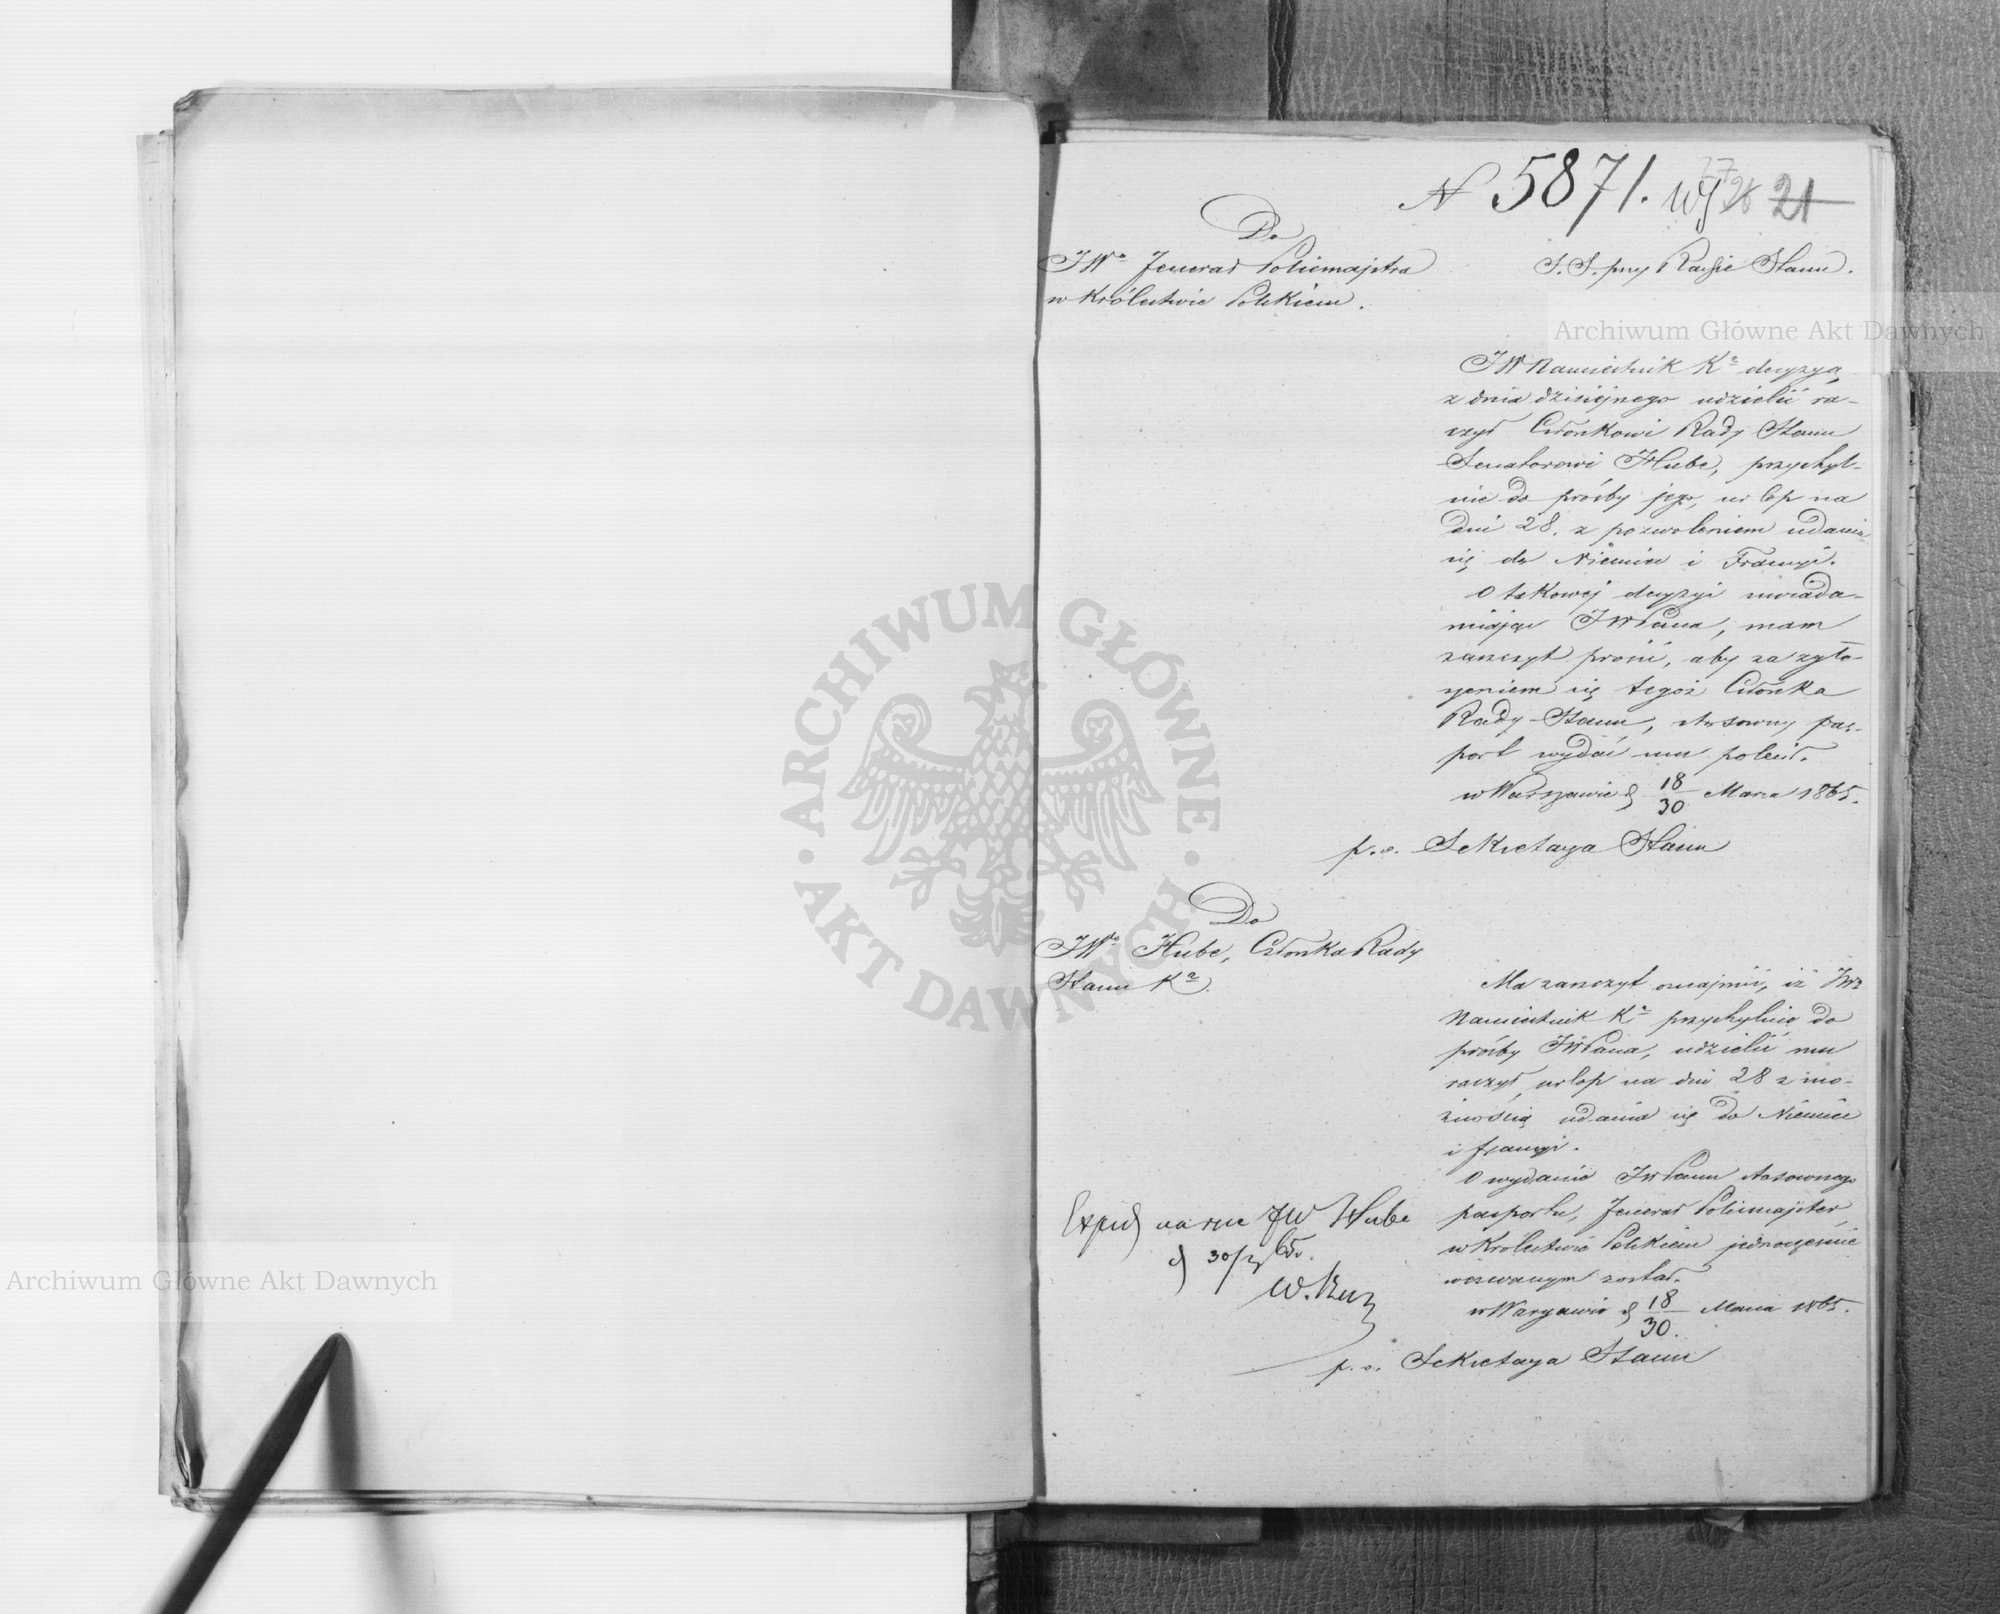 N 5871. 21
Do
JWo Jenerał Policmajstra
w Królestwie Polskiem.
S. S. przy Radzie Stanu.
JW Namiestnik Ka decyzyą
z dnia dzisiejnego udzielić ra-
czył Członkowi Rady Stanu
Senatorowi Hube, przychyl-
nie do próśby jego, urlop na
dni 28. z pozwoleniem udania
się do Niemiec i Francyi.
O takowej decyzyi zawiada-
miając JWPana, mam
zaszczyt prosić, aby za zgło-
szeniem się tegoż Członka
Rady Stanu, stosowny pas-
port wydać mu polecił.
w Warszawie d 18/30 Marca 1865.
p. o. Sekretarza Stanu
Do
JWo Hube, Członka Rady
Stanu Ka.
Ma zaszczyt oznajmić, iż JW
Namiestnik Ka przychylnie do
próśby JWPana, udzielić mu
raczył, urlop na dni 28 z mo-
żnością udania się do Niemiec
i Francyi.
O wydanie JWPanu stosownego
pasportu, Jenerał Policmajster
w Królestwie Polskiem jednocześnie
wezwanym został.
w Warszawie d 18/30. Marca 1865.
p. o. Sekretarza Stanu
na ręce JW Hube
d 30/3 65.
Archiwum Główne Akt Dawnych
Archiwum Główne Akt Dawnych
ARCHIWUM GŁÓWNE · AKT DAWNYCH ·